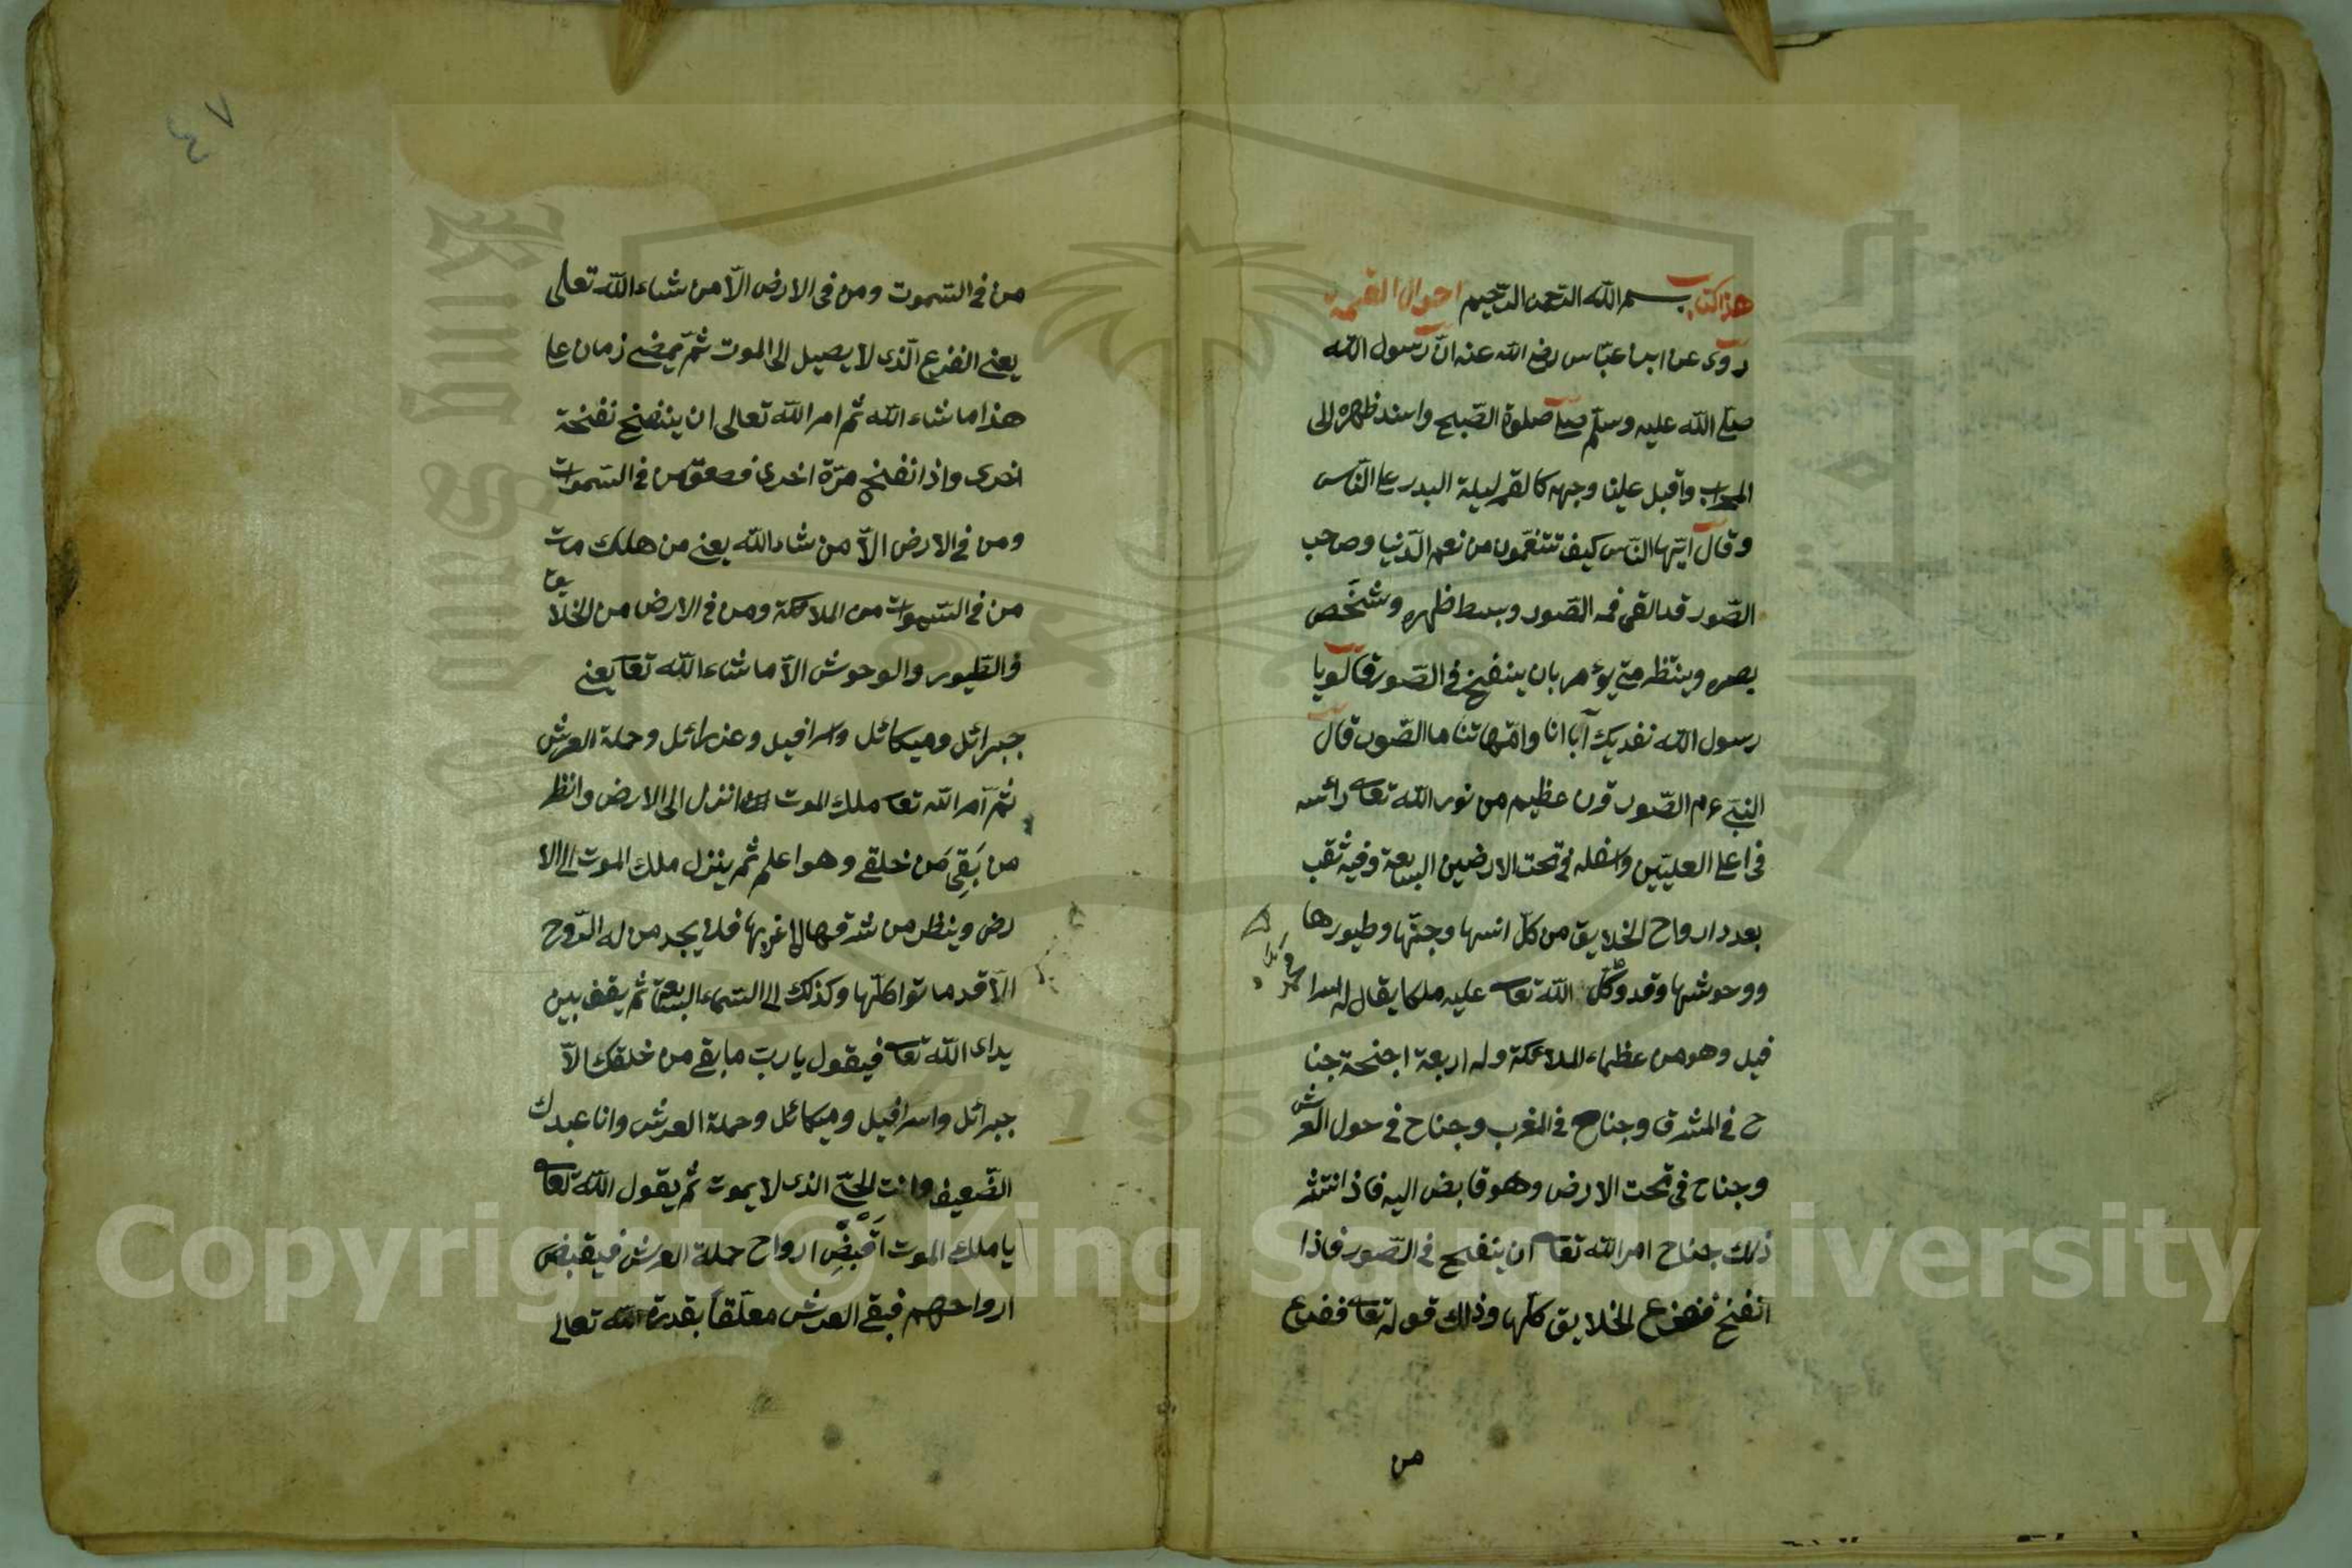 هذا كتاب بسم الله الرحمن الرحيم احوال القيمة
روى عن ابن عبّاس رضى الله عنه انّ رسول الله
صلى الله عليه وسلّم صلى صلوة الصّبح واسند ظهره الى
المحراب واقبل علينا وجهه كالقمر ليلة البدر على النّاس
وقال ايّها النّاس كيف تتنعّمون من نعم الدّنيا وصاحب
الصّور قد القى فمه الصّور وبسط ظهره وشخَص
بصره وينتظر متى يؤمر بان ينفخ فى الصّور قالو يا
رسول الله نفديك آبا انا وامّهاتنا ما الصّور قال
النبى عم الصّور قرن عظيم من نور الله تعالى رأسه
فى اعلى العليّين واسفله فى تحت الارضين السبعة وفيه ثقب
بعدد ارواح الخلايق من كلّ انسها وجنّها وطيورها
ووحوشها وقد وكّل الله تعالى عليه ملكا يقال له اسرا
فيل وهو من عظماء الملائكة وله اربعة اجنحة جنا
ح فى المشرق وجناح فى المغرب وجناح فى حول العرش
وجناح فى تحت الارض وهو قابض اليه فاذ انتشر
ذلك جناح امر الله تعالى ان ينفخ فى الصّور فاذا
انفخ ففزع الخلايق كلّها وذلك قوله تعالى ففزع
من
٤٧
من فى السّموت ومن فى الارض الّا من شاء الله تعلى
يعنى الفزع الّذى لا يصيل الى الموت ثمّ يمضى زمان على
هذا ما شاء الله ثم امر الله تعالى ان ينفخ نفخة
اخرى واذا نفخ مرّة اخرى فصعق من فى السّموات
ومن فى الارض الّا من شاء الله يعنى من هلك مات
من فى السّموات من الملائكة ومن فى الارض من الخلايق
والطّيور والوحوش الّا ما شاء الله تعا يعنى
جبرائل وميكائل واسرافيل وعزرائل وحملة العرش
ثمّ آمر الله تعالى ملك الموت انزل الى الارض وانظر
من بَقِىَ مَن خلقى وهو اعلم ثم ينزل ملك الموت الى الا
رض وينظر من شرقها الى غربها فلا يجد من له الرّوح
الّا قد ماتوا كلّها وكذلك الى السّماء السّابعة ثم يقف بين
يداى الله تعالى فيقول يا ربّ ما بقى من خلقك الّا
جبرائل واسرافيل وميكائل وحملة العرش وانا عبدك
الضّعيف وانت الحىّ الذى لا يموت ثم يقول الله تعالى
يا ملك الموت اَقْبِضْ ارواح حملة العرش فيقبض
ارواحهم فبقى العرش معلّقاً بقدرة الله تعالى
Copyright © King Saud University